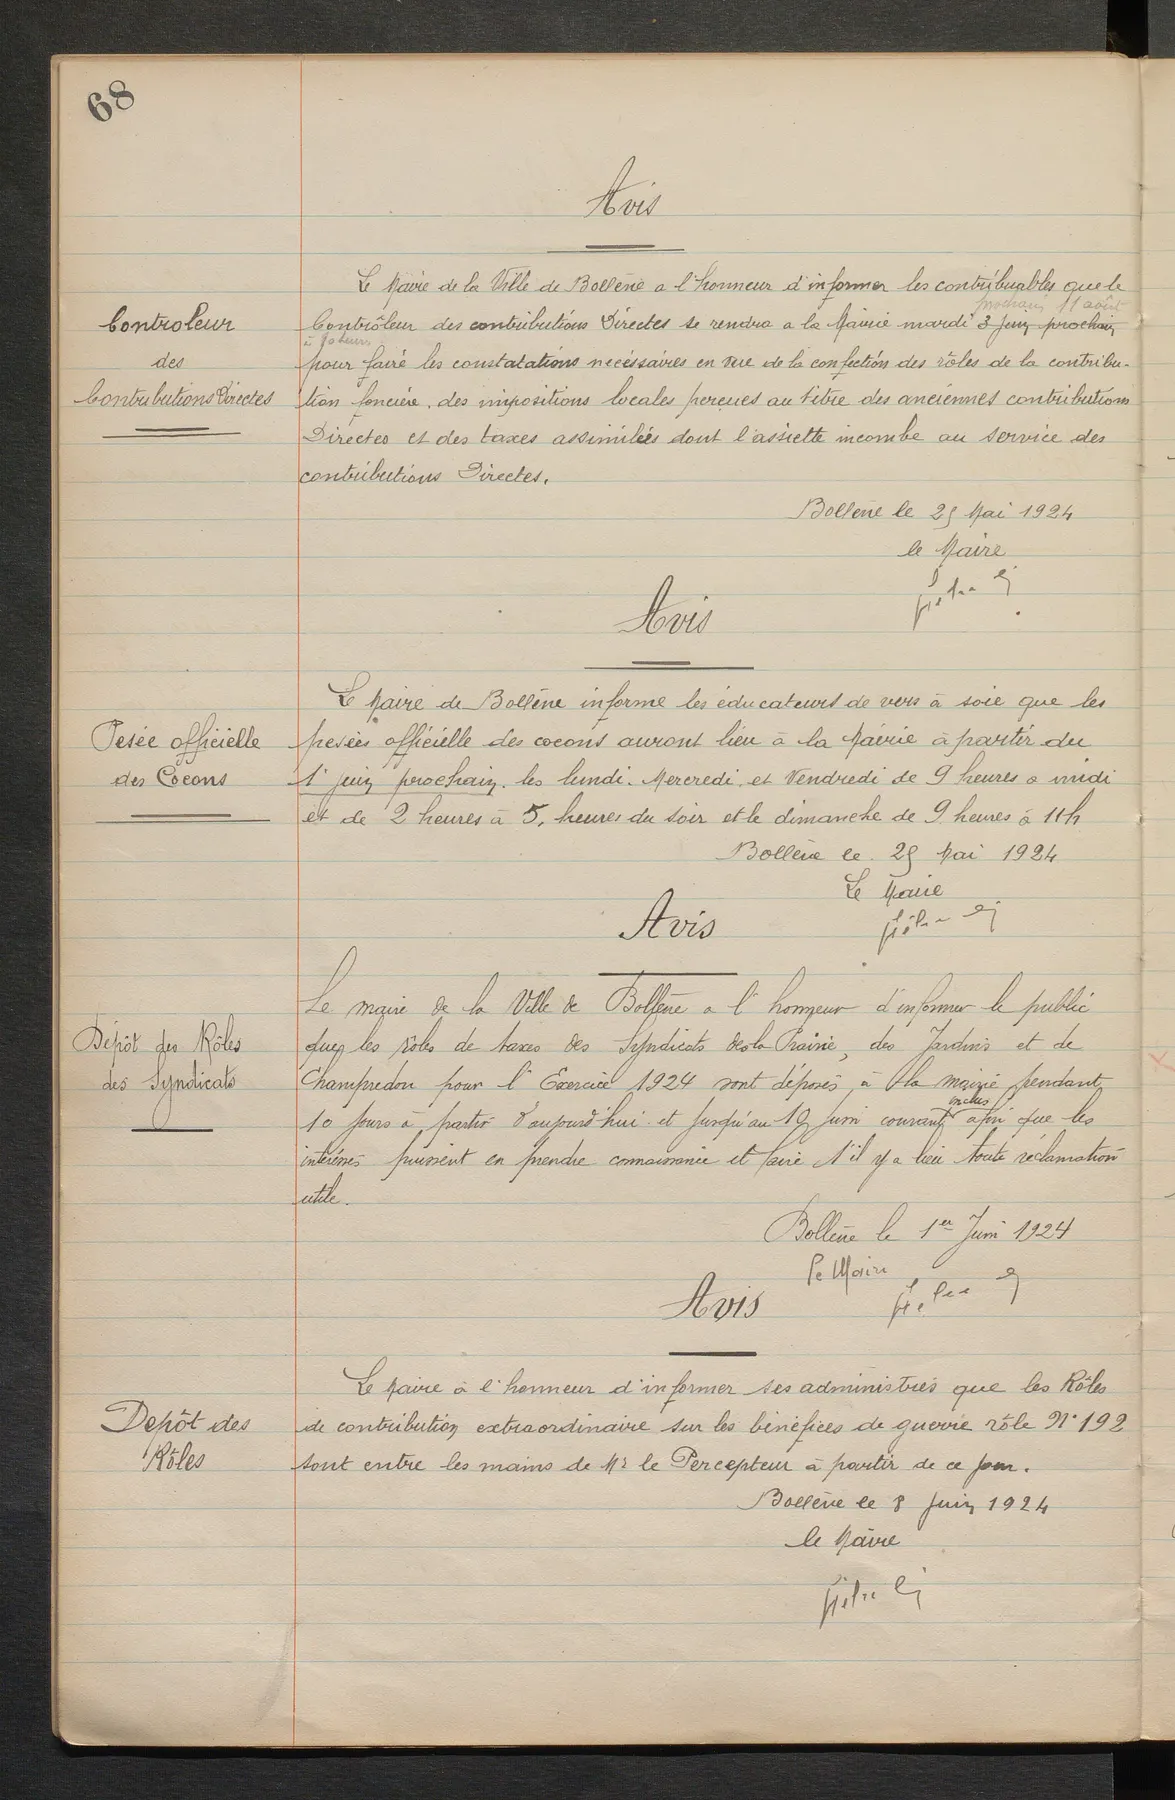 68
Avis
Le Maire de la Ville de Bollène a l'honneur d'informer les contribuables que le
prochain 11 août
Controleur
des
Contributions Directes
Contrôleur des contributions Directes se rendra a la Mairie mardi 3 Juin prochain
pour faire les constatations necéssaires en vue de la confection des rôles de la contribu-
tion foncière. des impositions locales perçues au titre des anciennes contributions
Directes et des taxes assimilées dont l'assiette incombe au service des
contributions Directes.
Bollène le 25 Mai 1924
le Maire
Avis
Le Maire de Bollène informe les éducateurs de vers à soie que les
Pesée officielle
des Cocons
pesées officielle des cocons auront lieu à la Mairie à partir du
1er juin prochain. les lundi. Mercredi. et Vendredi de 9 heures a midi
et de 2 heures à 5. heures du soir et le dimanche de 9 heures à 11h
Bollène le 25 Mai 1924
Le Maire
Avis
Le maire de la Ville de Bollène a l'honneur d'informer le public
Dépôt des Rôles
des Syndicats
que les rôles de taxes des Syndicats de la Prairie, des Jardins et de
Champredon pour l'Exercice 1924 sont déposés à la mairie pendant
inclus
10 jours à partir d'aujourd'hui et jusqu'au 10 Juin courant afin que les
intéréssés puissent en prendre connaissance et faire s'il y a lieu toute réclamation
utile.
Bollène le 1er Juin 1924
Le Maire
Avis
Le Maire à l'honneur d'informer ses administrés que les Rôles
Depôt des
Rôles
de contribution extraordinaire sur les bénéfices de guerre rôle N° 192
sont entre les mains de Mr le Percepteur à partir de ce jour.
Bollène le 8 Juin 1924
le Maire